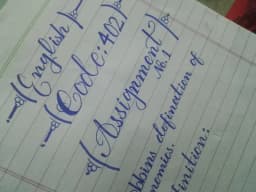 (English)
(Code: 402)
(Assignment
No. 1
bbins defination of
nomics.
finition: